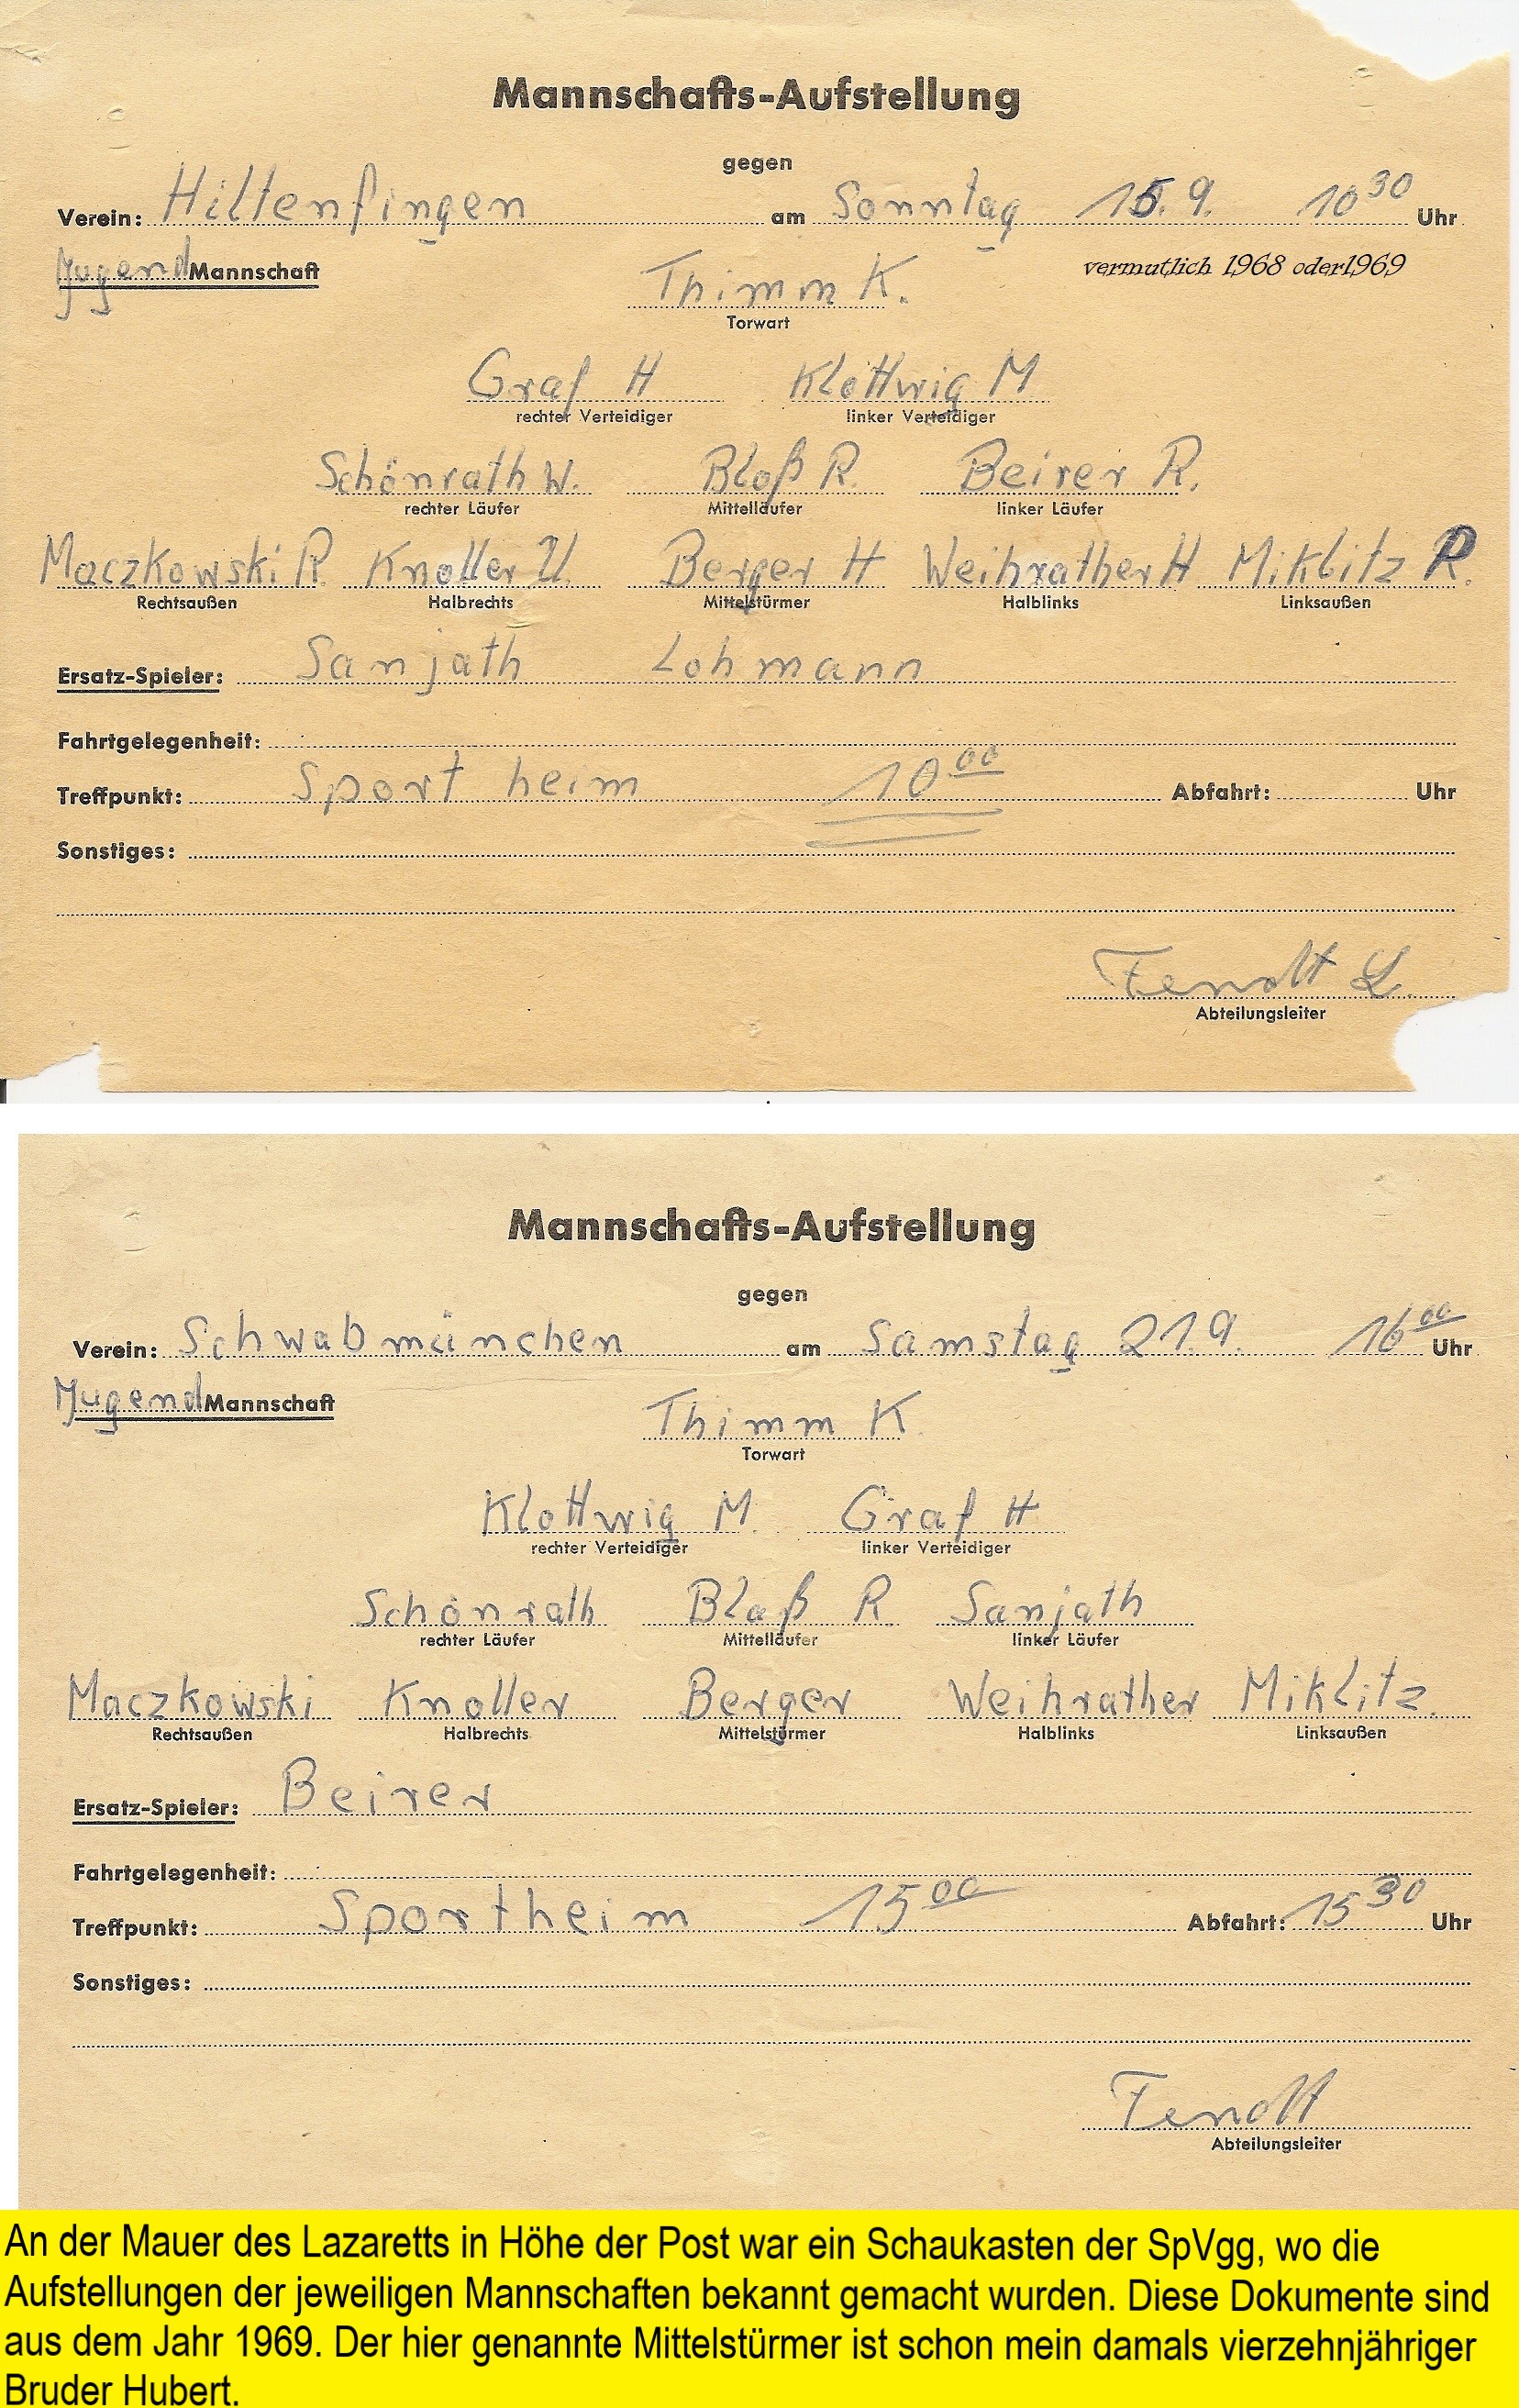 Mannschafts-Aufstellung
gegen
Verein: Hiltenfingen am Sonntag 15. 9. 10 30 Uhr
Jugend Mannschaft Thimm K. vermutlich 1968 oder1969
Torwart
Graf H Klottwig M
rechter Verteidiger linker Verteidiger
Schönrath W. Bloß R. Beirer R.
rechter Läufer Mittelläufer linker Läufer
Maczkowski R. Knoller U. Berger H Weihrather H Miklitz R.
Rechtsaußen Halbrechts Mittelstürmer Halblinks Linksaußen
Ersatz-Spieler: Sanjath Lohmann
Fahrtgelegenheit:
Treffpunkt: Sportheim 10 00 Abfahrt: Uhr
Sonstiges:
Fendt L.
Abteilungsleiter
Mannschafts-Aufstellung
gegen
Verein: Schwabmünchen am Samstag 21. 9. 16 00 Uhr
Jugend Mannschaft Thimm K.
Torwart
Klottwig M. Graf H
rechter Verteidiger linker Verteidiger
Schönrath Blaß R Sanjath
rechter Läufer Mittelläufer linker Läufer
Maczkowski Knoller Berger Weihrather Miklitz.
Rechtsaußen Halbrechts Mittelstürmer Halblinks Linksaußen
Ersatz-Spieler: Beirer
Fahrtgelegenheit:
Treffpunkt: Sportheim 15 00 Abfahrt: 15 30 Uhr
Sonstiges:
Fendt
Abteilungsleiter
An der Mauer des Lazaretts in Höhe der Post war ein Schaukasten der SpVgg, wo die
Aufstellungen der jeweiligen Mannschaften bekannt gemacht wurden. Diese Dokumente sind
aus dem Jahr 1969. Der hier genannte Mittelstürmer ist schon mein damals vierzehnjähriger
Bruder Hubert.